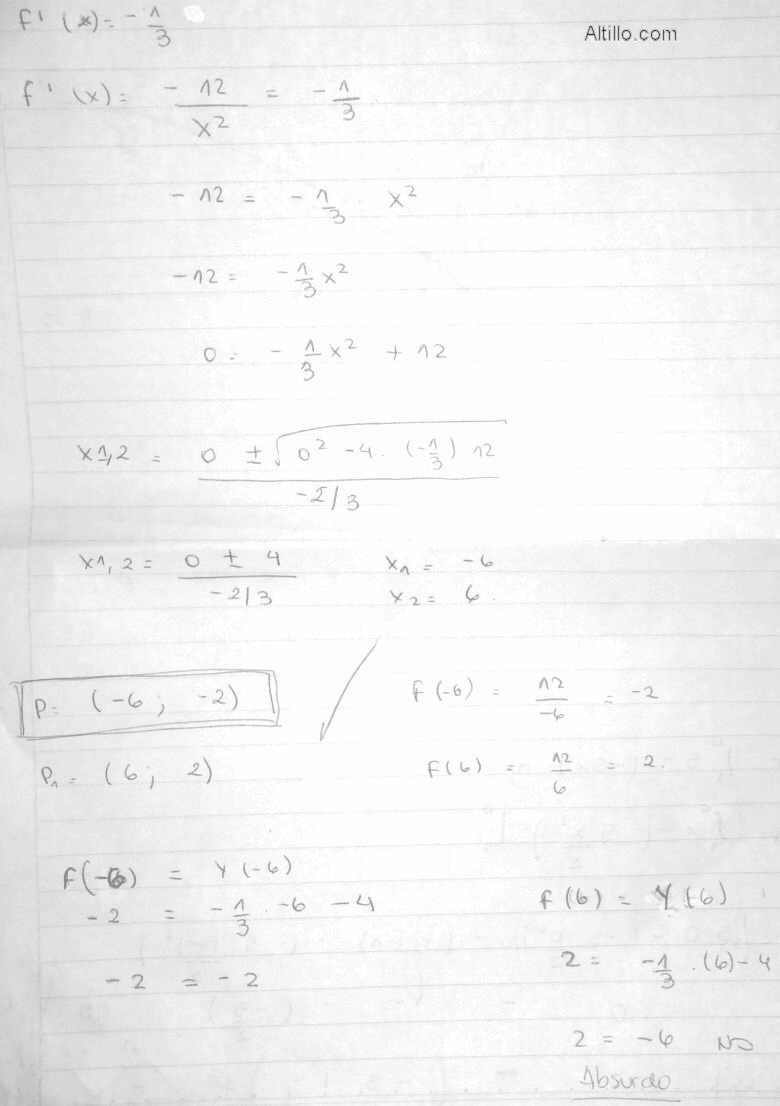 f'(x) = -1/3
Altillo.com
f'(x) = -12/x² = -1/3
-12 = -1/3 · x²
-12 = -1/3 x²
0 = -1/3 x² + 12
x1,2 = 0 ± √(0² - 4 · (-1/3) 12) / -2/3
x1,2 = 0 ± 4 / -2/3 x₁ = -6
x₂ = 6
P = (-6; -2) f(-6) = 12/-6 = -2
P₁ = (6; 2) f(6) = 12/6 = 2
f(-6) = Y(-6)
-2 = -1/3 · -6 - 4
-2 = -2
f(6) = Y(6)
2 = -1/3 · (6) - 4
2 = -6 NO
Absurdo